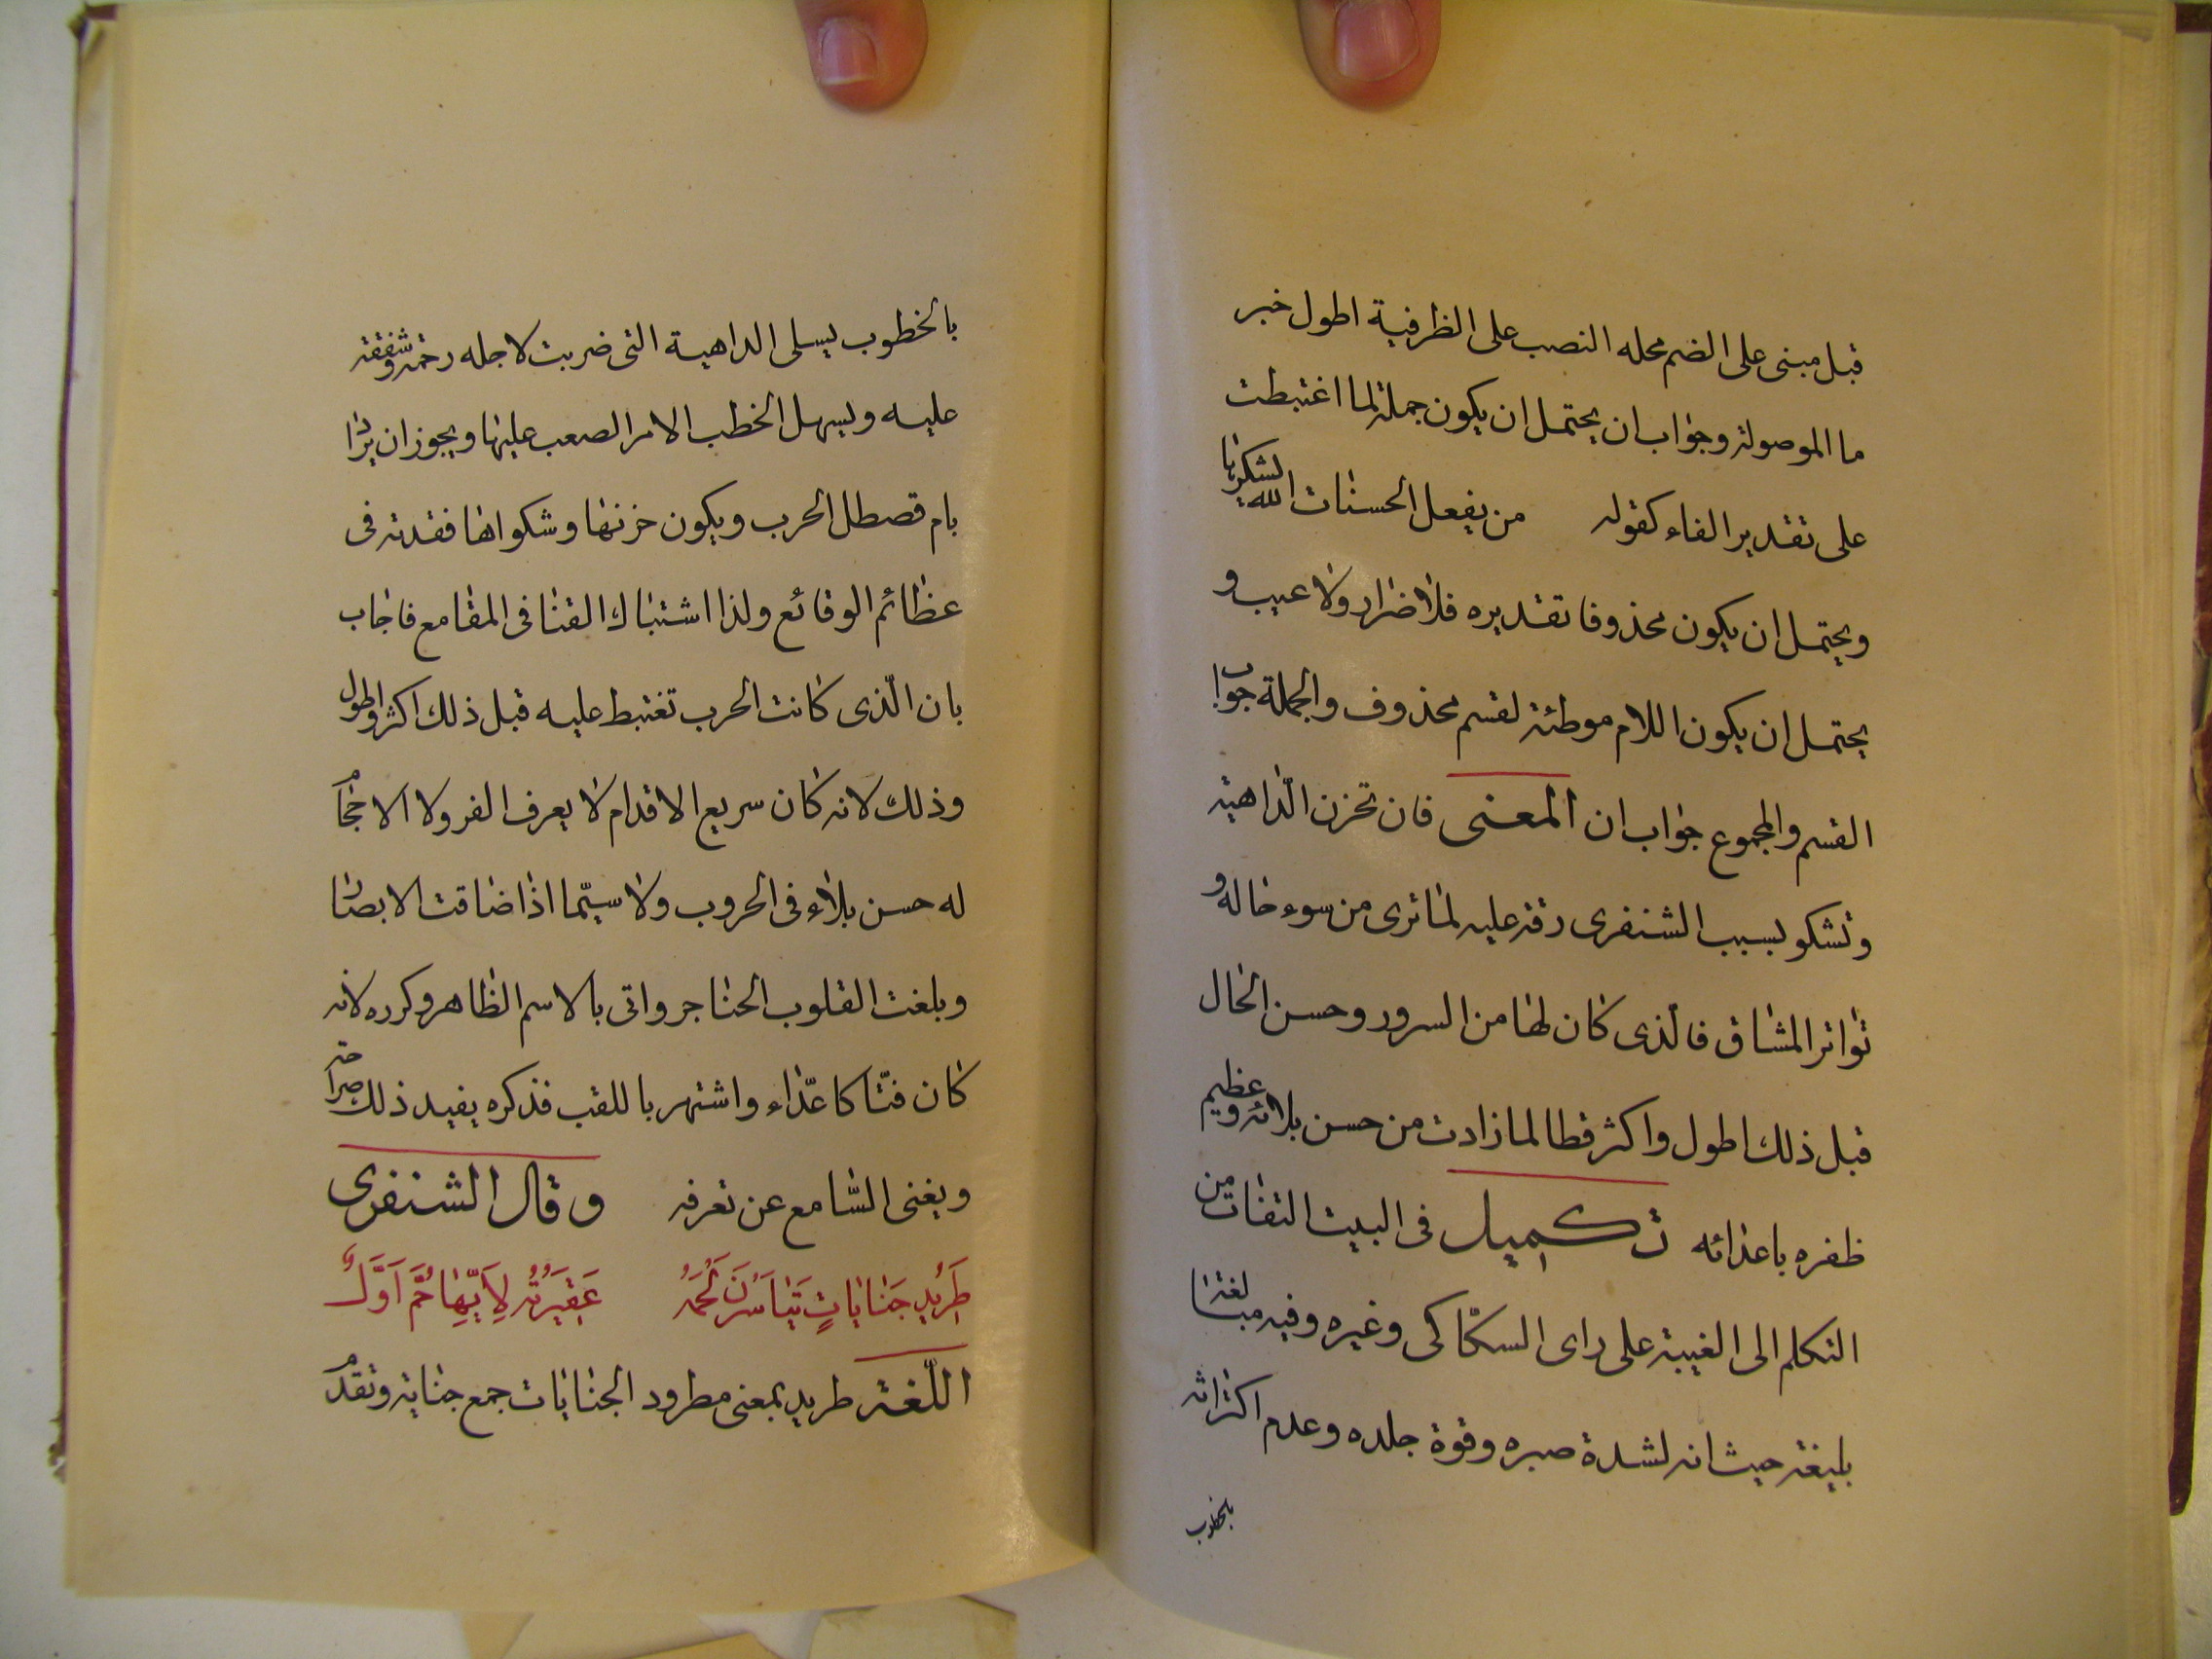 قبل مبنى على الضم محله النصب على الظرفية اطول خبر
ما الموصولة وجواب ان يحتمل ان يكون جملة لما اغتبطت
على تقدير الفاء كقوله من يفعل الحسنات الله يشكرها
ويحتمل ان يكون محذوفا تقديره فلا ضرار ولا عيب و
يحتمل ان يكون اللام موطئة لقسم محذوف والجملة جواب
القسم والمجموع جواب ان المعنى فان تحزن الداهية
وتشكو بسبب الشنفرى رقة عليه لما ترى من سوء حاله و
تواتر المشاق فالذى كان لها من السرور وحسن الحال
قبل ذلك اطول واكثر فطالما زادت من حسن بلائه وعظيم
ظفره باعدائه تكميل فى البيت التفات من
التكلم الى الغيبة على راى السكّاكى وغيره وفيه مبالغة
بليغة حيث انه لشدة صبره وقوة جلده وعدم اكتراثه
بالخطوب
بالخطوب يسلى الداهية التى ضربت لاجله رحمة وشفقة
عليه ويسهل الخطب الامر الصعب عليها ويجوز ان يراد
بام قصطل الحرب ويكون حزنها وشكواها فقدته فى
عظائم الوقائع ولذا اشتباك القنا فى المقامع فاجاب
بان الّذى كانت الحرب تغتبط عليه قبل ذلك اكثر واطول
وذلك لانه كان سريع الاقدام لا يعرف الفر ولا الاحجام
له حسن بلاء فى الحروب ولا سيّما اذا ضاقت الابصار
وبلغت القلوب الحناجر واتى بالاسم الظاهر وكرره لانه
كان فتّاكا عدّاء واشتهر باللقب فذكره يفيد ذلك صراحة
ويغنى السّامع عن تعرفه وقال الشنفرى
طَرِيدِ جَنَايَاتٍ تَيَاسَرْنَ لَحْمَهُ عَقِيرَتُهُ لِاَيِّهَا حُمَّ اَوَّلُ
اللّغة طريد بمعنى مطرود الجنايات جمع جناية وتقدم